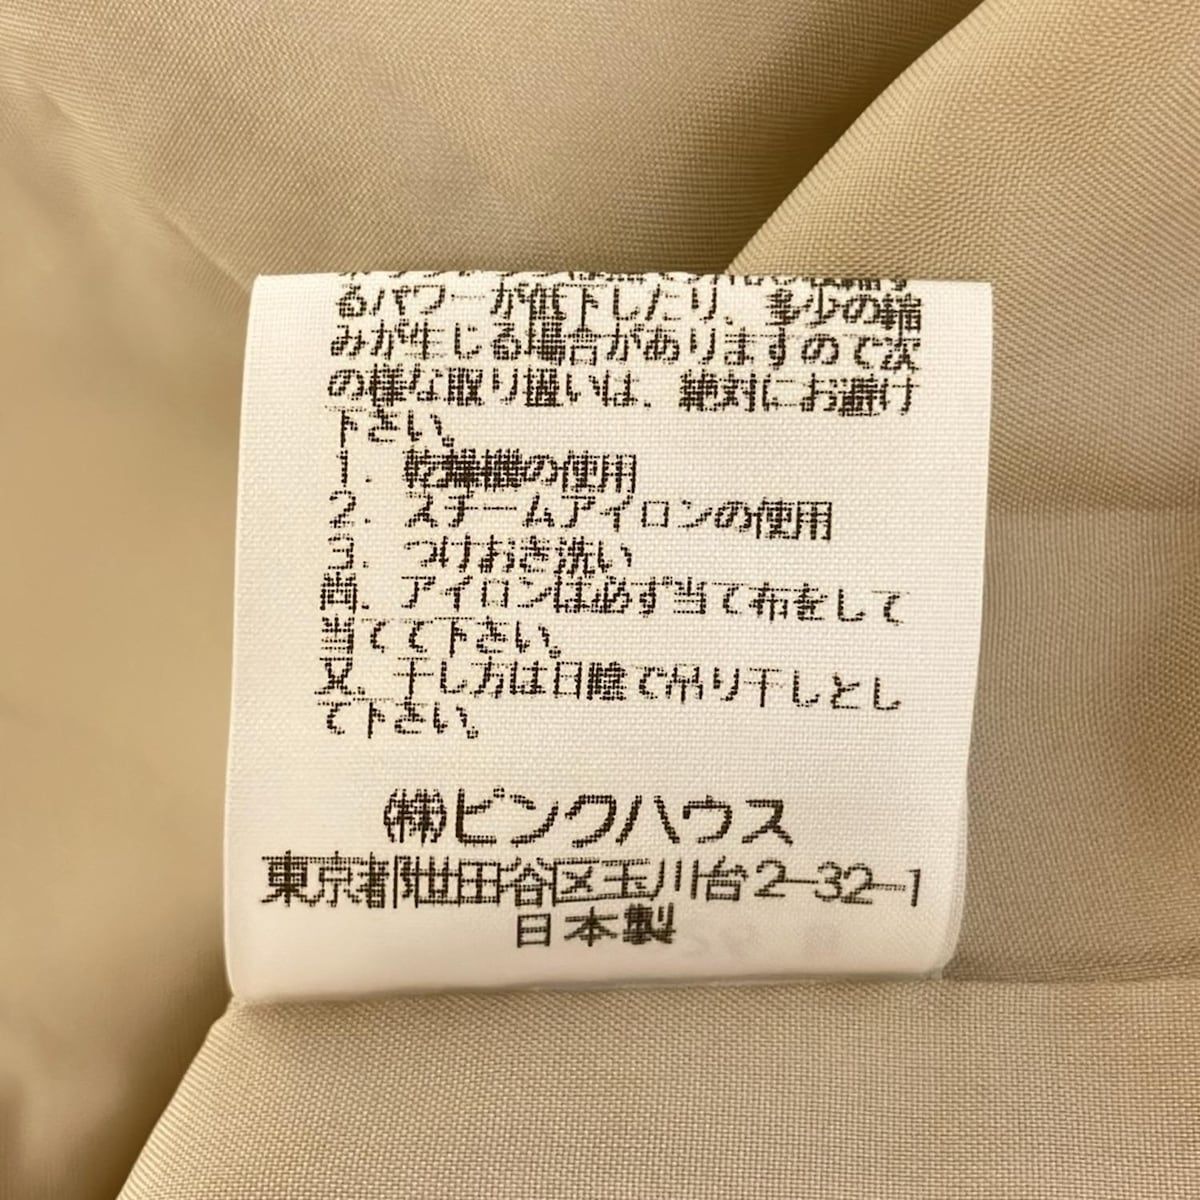 るパワーが低下したり、多少の縮
みが生じる場合がありますので次
の様な取り扱いは、絶対にお避け
下さい。
1. 乾燥機の使用
2. スチームアイロンの使用
3. つけおき洗い
尚、アイロンは必ず当て布をして
当てて下さい。
又、干し方は日陰で吊り干しとし
て下さい。
㈱ピンクハウス
東京都世田谷区玉川台2-32-1
日本製